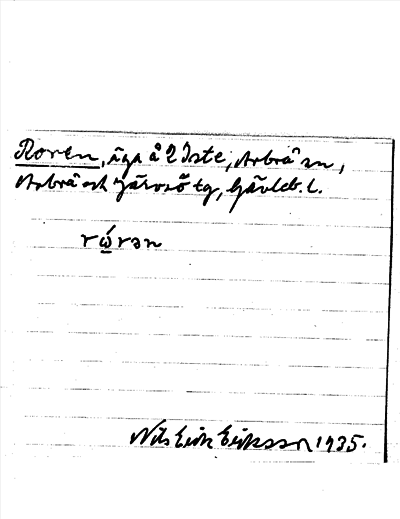 Roren, äga å 2 Iste, Arbrå sn,
Arbrå och Järvsö tg, Gävleb. l.
rώ̲rən
Nils Erik Eriksson 1935.